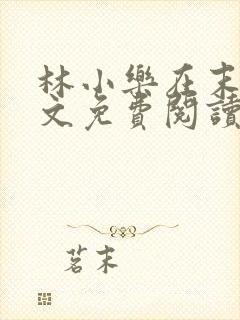 林小樂在末
文免費閱讀
茗末